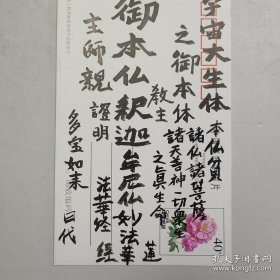 宇宙大生体
之御本体
教主
本仏貧
諸仏諸菩薩
諸天善神一切衆生
之真生命
御本仏釈迦牟尼仏妙法蓮華経
主師親
證明
法華経
多宝如来
日代
40
孔夫子旧书网